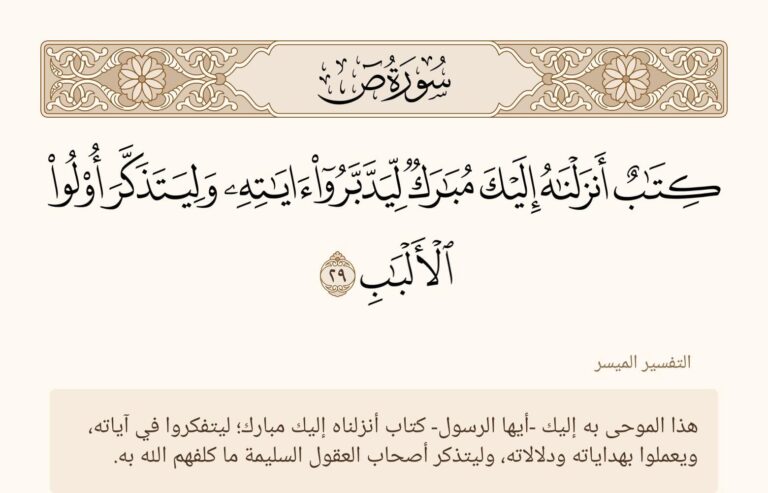 سُورَةُ صٓ
كِتَٰبٌ أَنزَلۡنَٰهُ إِلَيۡكَ مُبَٰرَكٞ لِّيَدَّبَّرُوٓاْ ءَايَٰتِهِۦ وَلِيَتَذَكَّرَ أُوْلُواْ
ٱلۡأَلۡبَٰبِ ٢٩
التفسير الميسر
هذا الموحى به إليك -أيها الرسول- كتاب أنزلناه إليك مبارك؛ ليتفكروا في آياته،
ويعملوا بهداياته ودلالاته، وليتذكر أصحاب العقول السليمة ما كلفهم الله به.